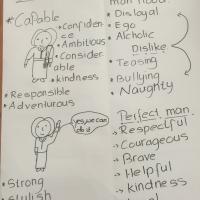 *Capable
*Confiden
ce
*Ambitious
*Consider
able
*kindness
*Responsible
*Adventurous
yes, we can
do it
*Strong
• Disloyal
• Ego
• Alcholic
Dislike
• Teasing
• Bullying
• Naughty
Perfect man
→ Respectful
→ Courageous
→ Brave
→ Helpful
→ kindness